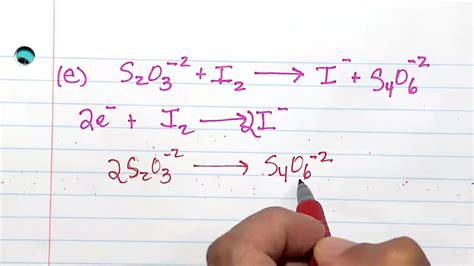 (e) S₂O₃⁻² + I₂ → I⁻ + S₄O₆⁻²
2e⁻ + I₂ → 2I⁻
2S₂O₃⁻² → S₄O₆⁻²